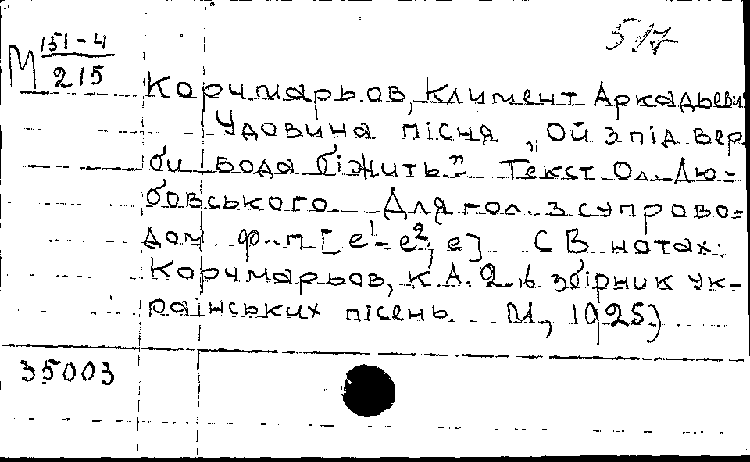 517
М 151-4
215
Корчмарьов, Климент Аркадьеви
Удовина пісня „Ой з під вер
би вода біжить” Текст Ол. Лю-
бовського. Для гол. з супрово-
дом ф-п [e¹-e²; e] (В нотах:
Корчмарьов, К.А. 2-й збірник ук-
раїнських пісень. М, 1925)
35003